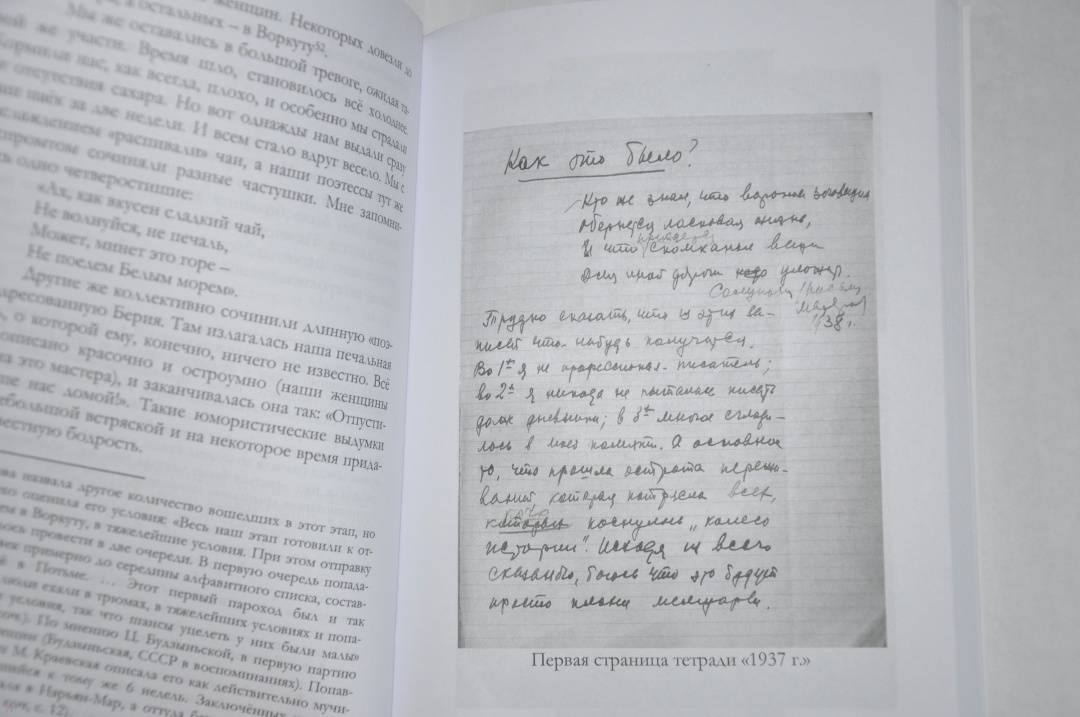 женщин. Некоторых довезли до
а остальных – в Воркуту⁵².
Мы же оставались в большой тревоге, ожидая та-
кой же участи. Время шло, становилось всё холоднее.
Кормили нас, как всегда, плохо, и особенно мы страдали
отсутствия сахара. Но вот однажды нам выдали сразу
паёк за две недели. И всем стало вдруг весело. Мы с
наслаждением «распивали» чаи, а наши поэтессы тут же
экспромтом сочиняли разные частушки. Мне запомни-
лось одно четверостишие:
«Ах, как вкусен сладкий чай,
Не волнуйся, не печаль,
Может, минет это горе –
Не поедем Белым морем».
Другие же коллективно сочинили длинную «поэ-
адресованную Берия. Там излагалась наша печальная
о которой ему, конечно, ничего не известно. Всё
описано красочно и остроумно (наши женщины
на это мастера), и заканчивалась она так: «Отпусти-
нас домой!». Такие юмористические выдумки
небольшой встряской и на некоторое время прида-
известную бодрость.
назвала другое количество вошедших в этот этап, но
оценила его условия: «Весь наш этап готовили к от-
в Воркуту, в тяжелейшие условия. При этом отправку
провести в две очереди. В первую очередь попада-
примерно до середины алфавитного списка, состав-
в Потьме. … Этот первый пароход был и так
люди ехали в трюмах, в тяжелейших условиях и попа-
условия, так что шансы уцелеть у них были малы»
По мнению Ц. Будзыньской, в первую партию
(Будзыньская, СССР в воспоминаниях). Попав-
М. Краевская описала его как действительно мучи-
к тому же 6 недель. Заключённых
в Нарьян-Мар, а оттуда
с. 12).
Как это было?
Кто же знал, что
обернется ласковая жизнь,
И что придется скомканые вещи
уложить.
1938 г.
Трудно сказать, что из этих за-
писей что-нибудь получится.
Во 1ых я не профессионал-писатель;
во 2х я никогда не пыталась писать
даже дневники; в 3их многое сглади-
лось в моей памяти. А основное
то, что прошла острота пережи-
ваний которая потрясла всех,
кого коснулось „колесо
истории". Исходя из всего
сказанного, боюсь что это будут
просто плохи мемуары.
Первая страница тетради «1937 г.»